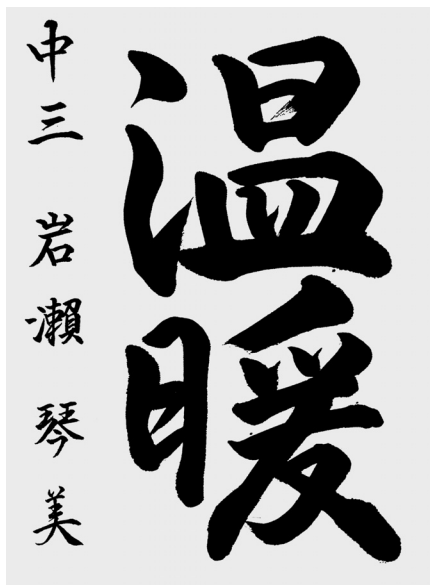 温暖
中三 岩瀬 琴美